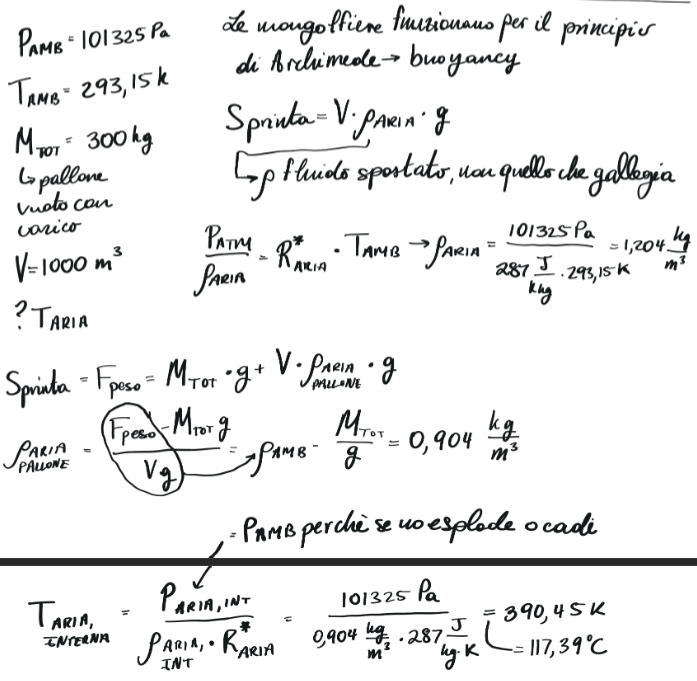 P_AMB = 101325 Pa
T_AMB = 293,15 k
M_TOT = 300 kg
↳ pallone
vuoto con
carico
V = 1000 m³
? T_ARIA
Le mongolfiere funzionano per il principio
di Archimede → buoyancy
Sprinta = V · ρ_ARIA · g
↳ ρ fluido spostato, non quello che gallegia
P_ATM / ρ_ARIA = R*_ARIA · T_AMB → ρ_ARIA = 101325 Pa / (287 J/k kg · 293,15 K) = 1,204 kg/m³
Sprinta = F_peso = M_TOT · g + V · ρ_ARIA PALLONE · g
ρ_ARIA PALLONE = (F_peso - M_TOT g) / Vg = ρ_AMB - M_TOT / g = 0,904 kg/m³
= P_AMB perchè se no esplode o cade
T_ARIA, INTERNA = P_ARIA, INT / (ρ_ARIA, INT · R*_ARIA) = 101325 Pa / (0,904 kg/m³ · 287 J/kg·K) = 390,45 K
= 117,39°C